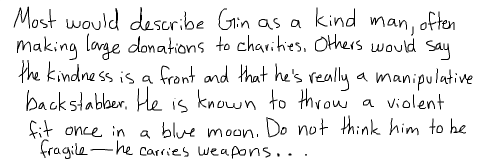 Most would describe Gin as a kind man, often
making large donations to charities. Others would say
the kindness is a front and that he's really a manipulative
backstabber. He is known to throw a violent
fit once in a blue moon. Do not think him to be
fragile—he carries weapons...